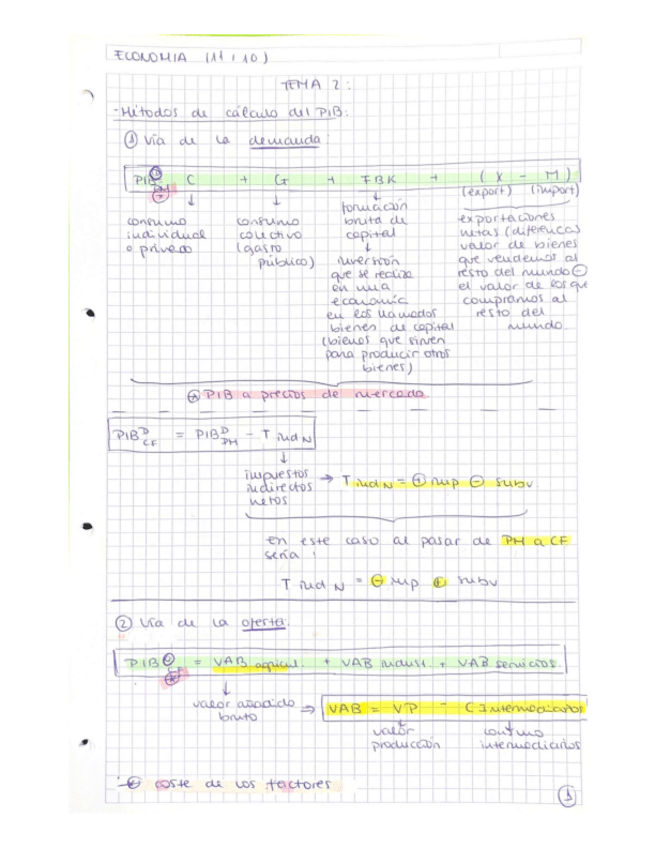 ECONOMIA (11/10)
TEMA 2:
- Métodos de cálculo del PIB:
① Vía de la demanda:
PIB^D_PM = C + G + FBK + (X - M)
(export) (import)
consumo individual o privado
consumo colectivo (gasto público)
formación bruta de capital
inversión que se realiza en una economía en los llamados bienes de capital (bienes que sirven para producir otros bienes)
exportaciones netas (diferencia valor de bienes que vendemos al resto del mundo ⊖ el valor de los que compramos al resto del mundo
PIB a precios de mercado
PIB^D_CF = PIB^D_PM - T ind N
impuestos indirectos netos → T ind N = ⊕ imp ⊖ subv.
En este caso al pasar de PM a CF
sería:
T ind N = ⊖ imp ⊕ subv
② Vía de la oferta:
PIB^O_CF = VAB agricul. + VAB indust. + VAB servicios.
valor añadido bruto ⇒ VAB = VP - C Intermediarios
valor producción
consumo intermediarios
coste de los factores
1